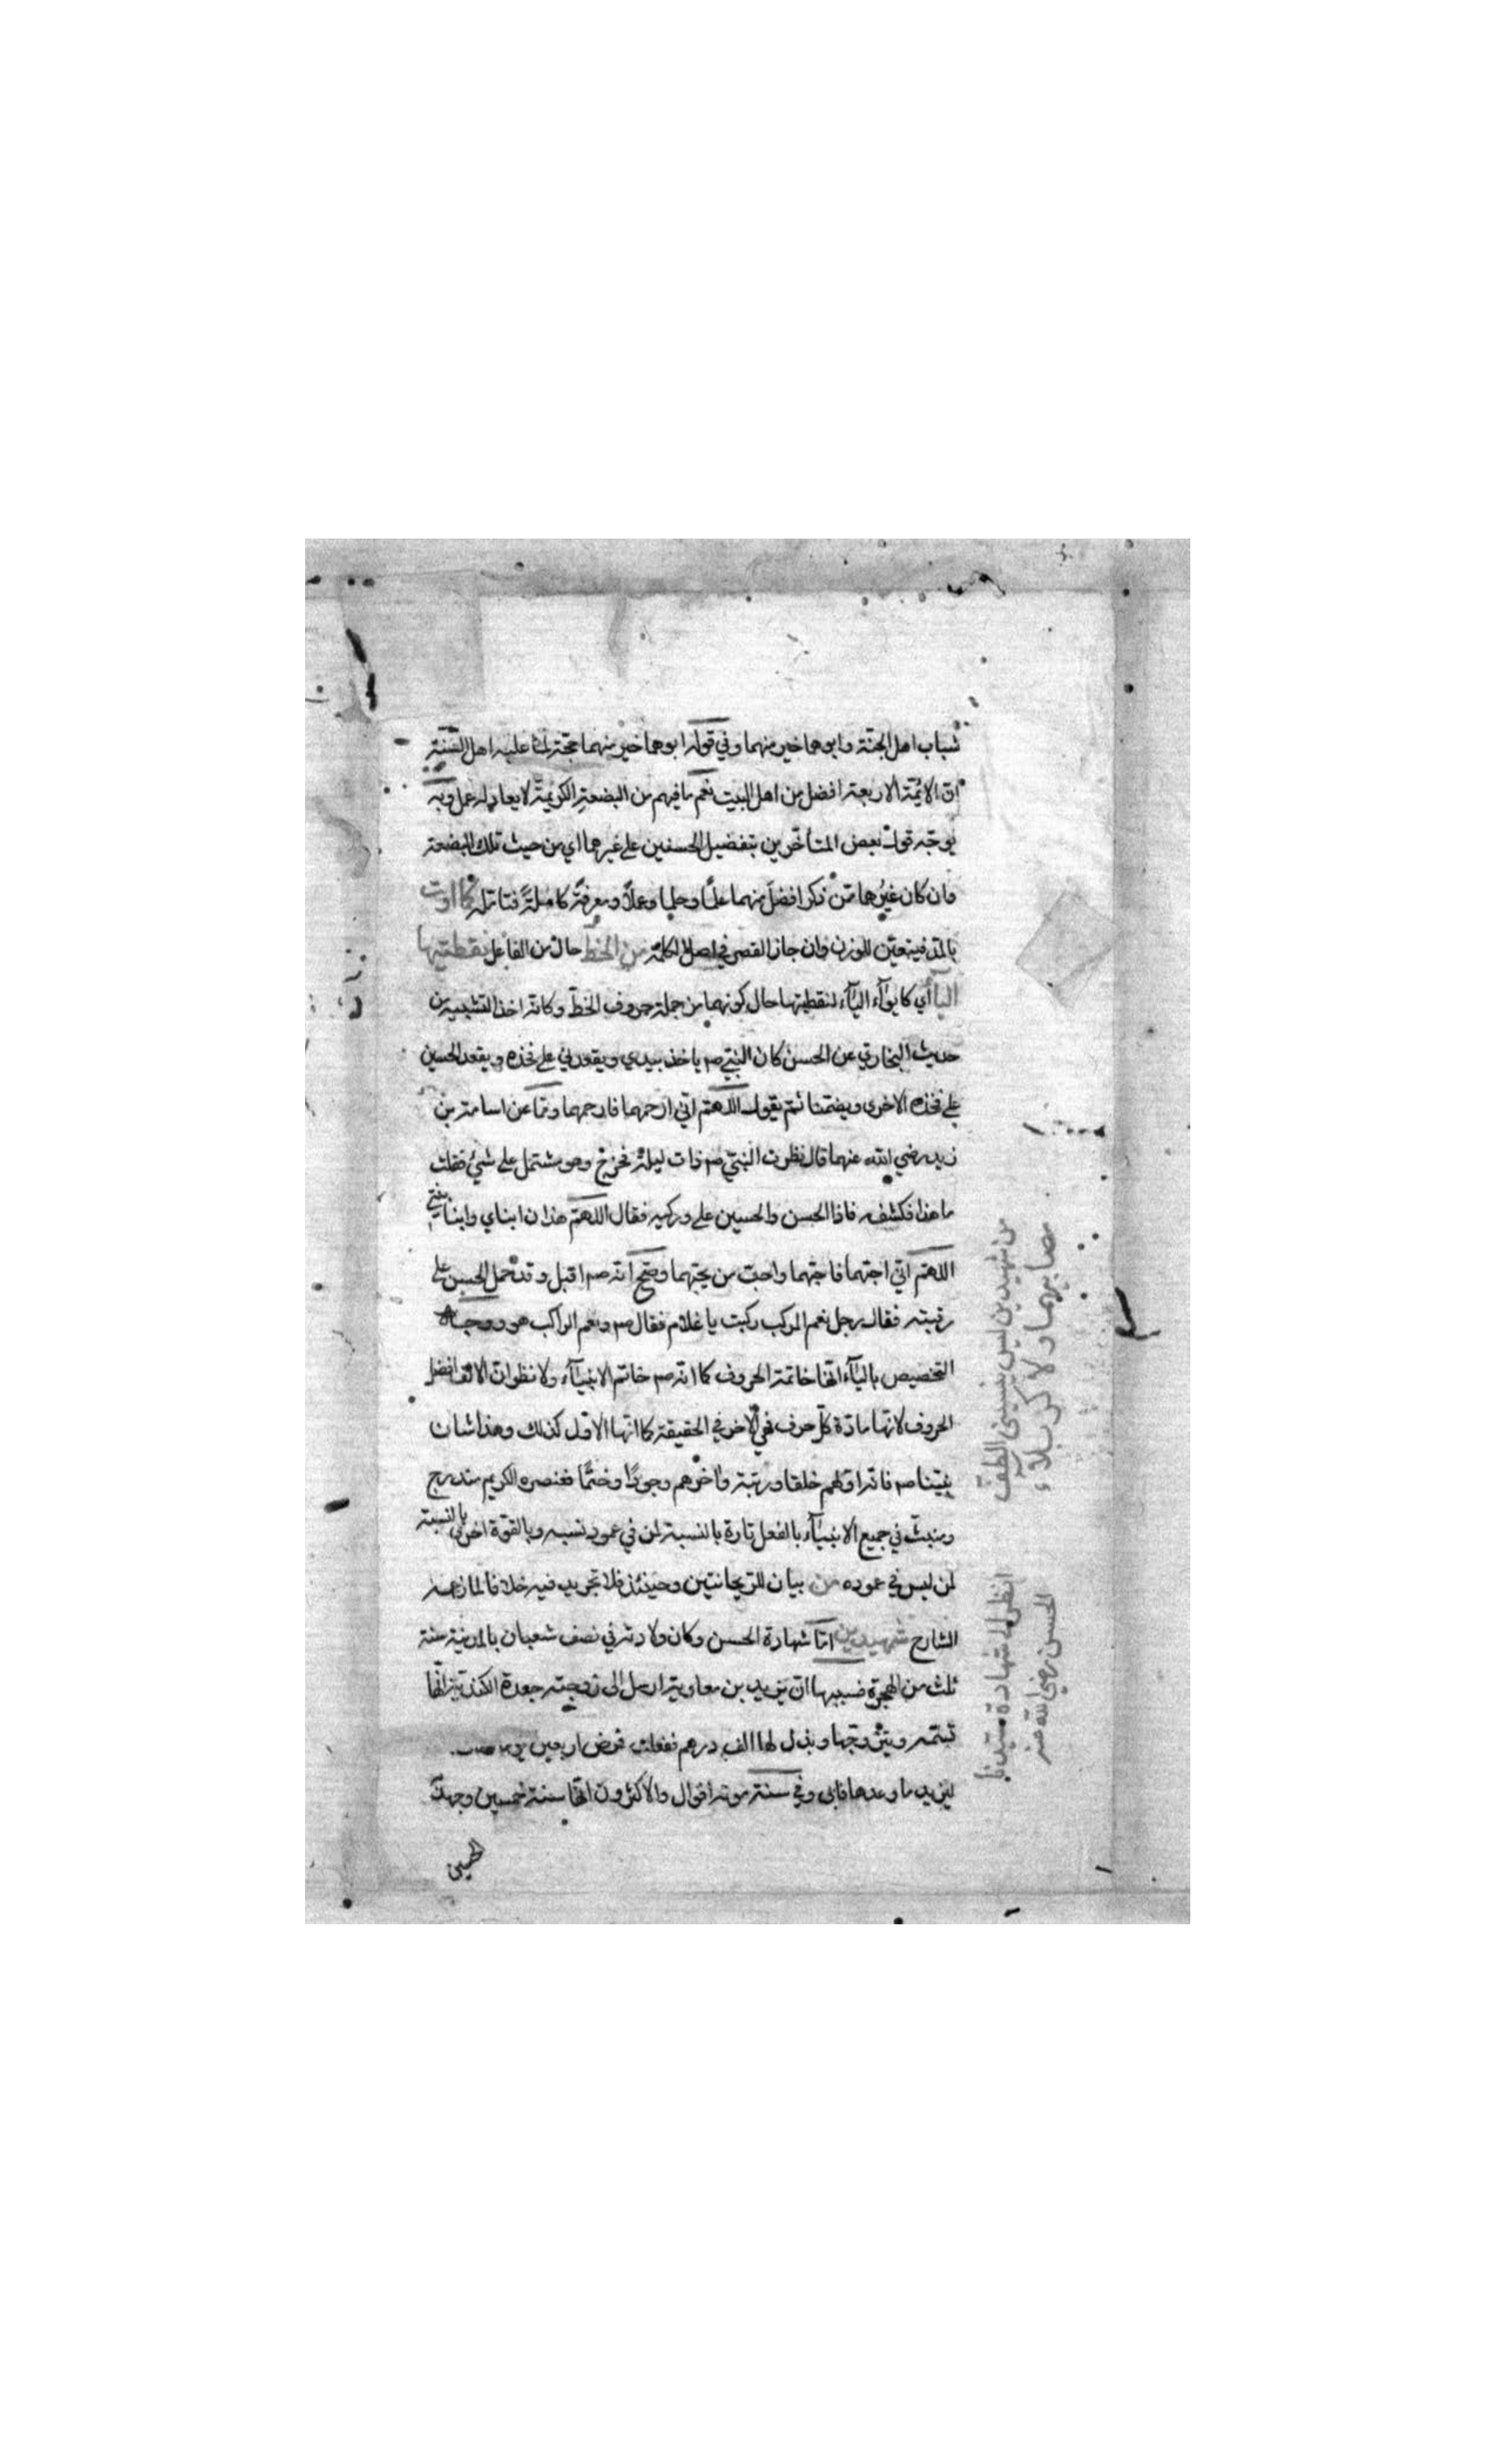 شباب اهل الجنّة وابوهما خير منهما وفي قوله ابوهما خير منهما حجّة لما عليه اهل السّنة
انّ الائمّة الاربعة افضل من اهل البيت نعم ما فيهم من البضعة الكريمة لا يعادله عمل وبه
يوجّه قول بعض المتأخّرين بتفضيل الحسنين على غيرهما اي من حيث تلك البضعة
وان كان غيرهما ممّن ذكر افضل منهما علمًا وحلما وعملاً ومعرفةً كاملةً فتامّله كما اوت
بالمد فيتعيّن للوزن وان جاز القصر في اصل الكلمة من الخطّ حال من الفاعل نقطتيها
اليا أي كايوآء اليآء لنقطتيها حال كونهما من جملة حروف الخطّ وكانّه اخذ التشبيه من
حديث البخاري عن الحسن كان النبيّ صم ياخذ بيدي ويقعدني على فخذه ويقعد الحسين
على فخذه الاخرى ويضمّنا ثم يقول اللّهمّ انّي ارحمهما فارحمهما وممّا عن اسامة بن
زيد رضي الله عنهما قال نظرت النبيّ صم ذات ليلة فخرج وهو مشتمل على شيئ فقلت
ما هذا فكشفه فاذا الحسن والحسين على وركيه فقال اللّهمّ هذان ابناي وابنا بنتي
اللّهمّ انّي احبّهما فاحبّهما واحبّ من يحبّهما وصحّ انّه صم اقبل وقد حمل الحسن على
رقبته فقال رجل نعم المركب ركبت يا غلام فقال صم ونعم الراكب هو ووجه
التخصيص باليآء انّها خاتمة الحروف كما انّه صم خاتم الانبيآء ولا نظر انّ الالف افضل
الحروف لانّها مادّة كلّ حرف فهي الآخر في الحقيقة كما انّها الاوّل كذلك وهذا شان
نبيّنا صم فانّه اوّلهم خلقا ورتبة وآخرهم وجودًا وختمًا فعنصره الكريم مندرج
ومنبثّ في جميع الانبيآء بالفعل تارة بالنسبة لمن في عمود نسبه وبالقوّة اخرى بالنسبة
لمن ليس في عموده من بيان للرّيحانتين وحينئذ فلا تجريد فيه خلافا لما زعمه
الشارح شهيدين امّا شهادة الحسن وكان ولادته في نصف شعبان بالمدينة سنة
ثلث من الهجرة فسببها انّ يزيد بن معاوية ارسل الى زوجته جعدة الكنديّة انّها
تسمّه ويتزوّجها وبذل لها الف درهم ففعلت فمرض اربعين
ليزيد ما وعدها فابى وفي سنة موته اقوال والاكثرون انّها سنة خمسين وجهد
الحسين
من شهيدين ليس ينسيني الطّفّ
مصابيهما ولا كربلآء
انظر الى شهادة سيّدنا
الحسن رضي الله عنه